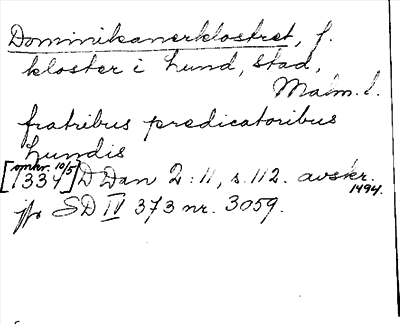 Dominikanerklostret, f.
kloster i Lund, stad,
Malm. l.
fratribus predicatoribus
Lundis
[omkr. 10/5 1334] D Dan 2:11, s. 112. avskr. 1494.
jfr SD IV 373 nr. 3059.